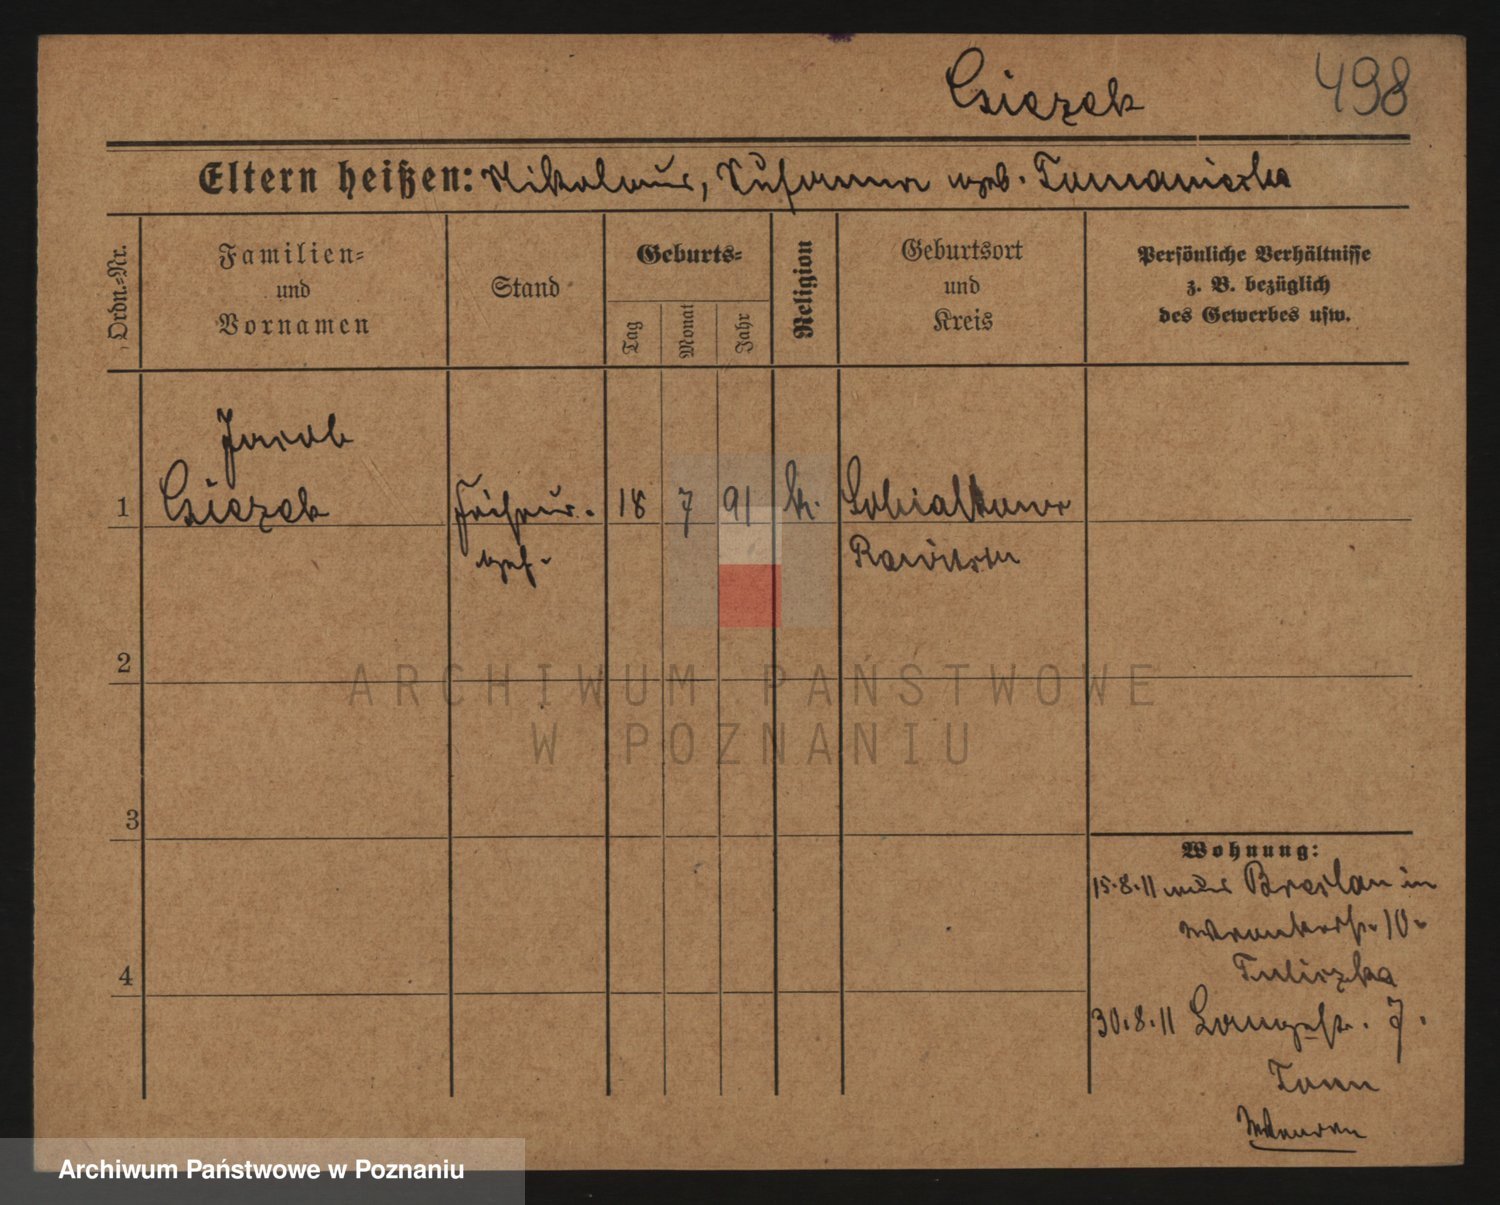 Csiezek 498
Eltern heißen: Nikolaus, Susanna geb. Tomaniczka
Ordn.-Nr.
Familien-
und
Vornamen
Stand
Geburts-
Tag
Monat
Jahr
Religion
Geburtsort
und
Kreis
Persönliche Verhältnisse
z. B. bezüglich
des Gewerbes usw.
Jacob
1 Csiezek Friseur- 18 7 91 k. Sobialkowo
geh. Rawitsch
2
3
4
Wohnung:
15.8.11 aus Breslau in
10
30.8.11 Langestr. 7.
ARCHIWUM PAŃSTWOWE
W POZNANIU
Archiwum Państwowe w Poznaniu